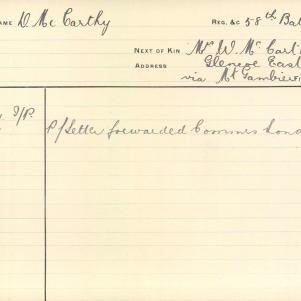 NAME D Mc Carthy REG. &C 58th Bat
NEXT OF KIN Mr W. Mc Cart
ADDRESS Glencoe East
via Mt Gambier
P/Letter forwarded Commrs Lond